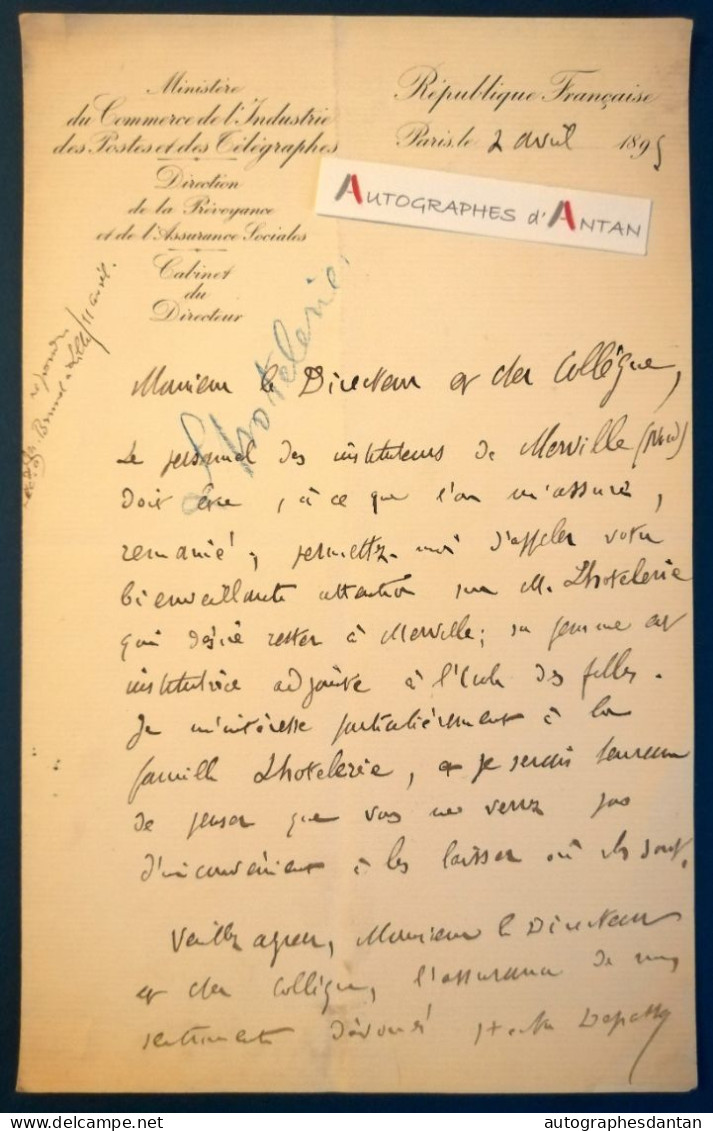 Ministère
du Commerce de l'Industrie
des Postes et des Télégraphes
Direction
de la Prévoyance
et de l'Assurance Sociales
Cabinet
du
Directeur
République Française
Paris, le 2 avril 1895
AUTOGRAPHES d'ANTAN
Lhotelerie
répondu
Brunel à Lille 11 avril.
Monsieur le Directeur et cher Collègue,
Le personnel des instituteurs de Merville (Nord)
doit être, à ce que l'on m'assure,
remanié ; permettez-moi d'appeler votre
bienveillante attention sur M. Lhotelerie
qui désire rester à Merville ; sa femme est
institutrice adjointe à l'école des filles.
Je m'intéresse particulièrement à la
famille Lhotelerie, et je serais heureux
de penser que vous ne verrez pas
d'inconvénient à les laisser où ils sont.
Veuillez agréer, Monsieur le Directeur
et cher Collègue, l'assurance de mes
sentiments dévoués Hector Depasse
autographesdantan
autographesdantan